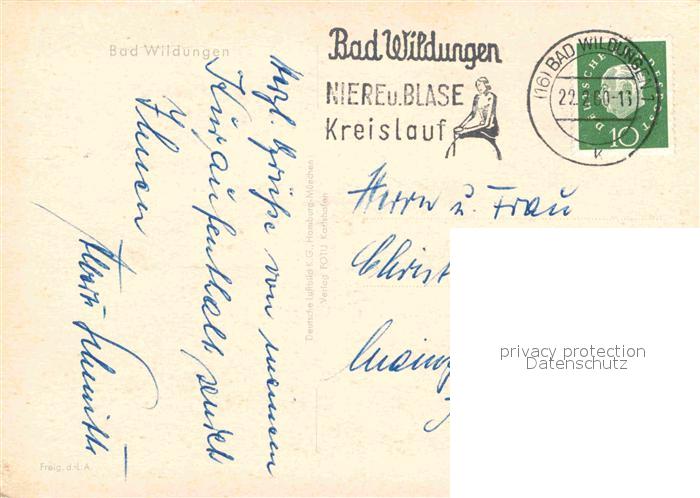 Bad Wildungen
Herzl. Grüße von meinem
Kuraufenthalt sendet
Ihnen
Schmitt
Freig. d. L A
Deutsche Luftbild K.G., Hamburg-München
Verlag FOTO Karlshafen
Bad Wildungen
NIERE u. BLASE
Kreislauf
(16) BAD WILDUNGEN 1
22.2.60-11
k
DEUTSCHE BUNDESPOST
10
Herrn u. Frau
Christ
Mainz
privacy protection
Datenschutz